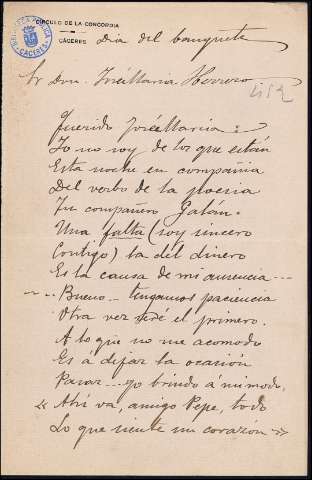 CÍRCULO DE LA CONCORDIA
CÁCERES
Día del banquete
Sr Don José María Herrero
Querido José María:
Yo no soy de los que están
Esta noche en compañía
Del verbo de la poesía
Tu compañero Galán.
Una falta (soy sincero
Contigo) la del dinero
Es la causa de mi ausencia...
Bueno.. tengamos paciencia
Otra vez seré el primero.
A lo que no me acomodo
Es á dejar la ocasión
Pasar... yo brindo á mi modo.
« Ahí va, amigo Pepe, todo
Lo que siente mi corazón »